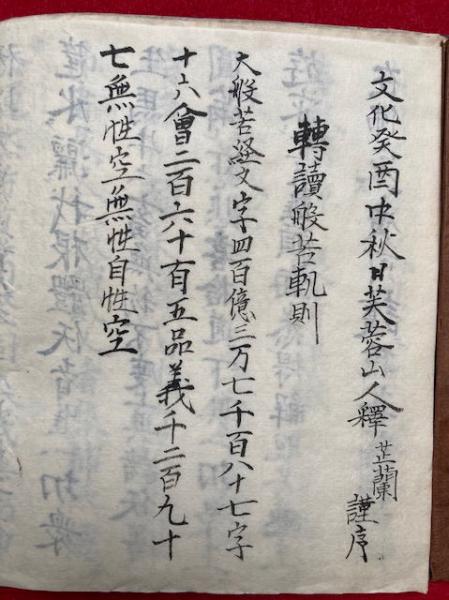 文化癸酉中秋日芙蓉山人釋芷蘭謹序
轉讀般若軌則
大般若経文字四百億三万七千百八十七字
十六會二百六十百五品義千二百九十
七無性空無性自性空